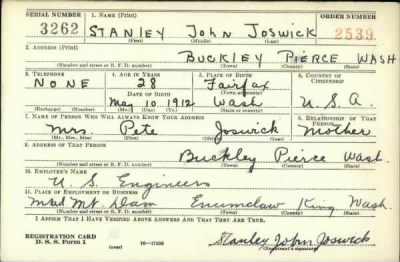 SERIAL NUMBER 1. NAME (Print) ORDER NUMBER
3262 STANLEY JOHN JOSWICK 2539
(First) (Middle) (Last)
2. ADDRESS (Print)
BUCKLEY PIERCE WASH
(Number and street or R. F. D. number) (Town) (County) (State)
3. TELEPHONE 4. AGE IN YEARS 5. PLACE OF BIRTH 6. COUNTRY OF CITIZENSHIP
NONE 28 Fairfax
DATE OF BIRTH (Town or county)
May 10 1912 Wash U.S.A.
(Exchange) (Number) (Mo.) (Day) (Yr.) (State or country)
7. NAME OF PERSON WHO WILL ALWAYS KNOW YOUR ADDRESS 8. RELATIONSHIP OF THAT PERSON
Mrs. Pete Joswick Mother
(Mr., Mrs., Miss) (First) (Middle) (Last)
9. ADDRESS OF THAT PERSON
Buckley Pierce Wash.
(Number and street or R. F. D. number) (Town) (County) (State)
10. EMPLOYER'S NAME
U. S. Engineers
11. PLACE OF EMPLOYMENT OR BUSINESS
Mud Mt. Dam Enumclaw King Wash.
(Number and street or R. F. D. number) (Town) (County) (State)
I AFFIRM THAT I HAVE VERIFIED ABOVE ANSWERS AND THAT THEY ARE TRUE.
REGISTRATION CARD
D. S. S. Form 1 (over) Stanley John Joswick
(Registrant's signature)